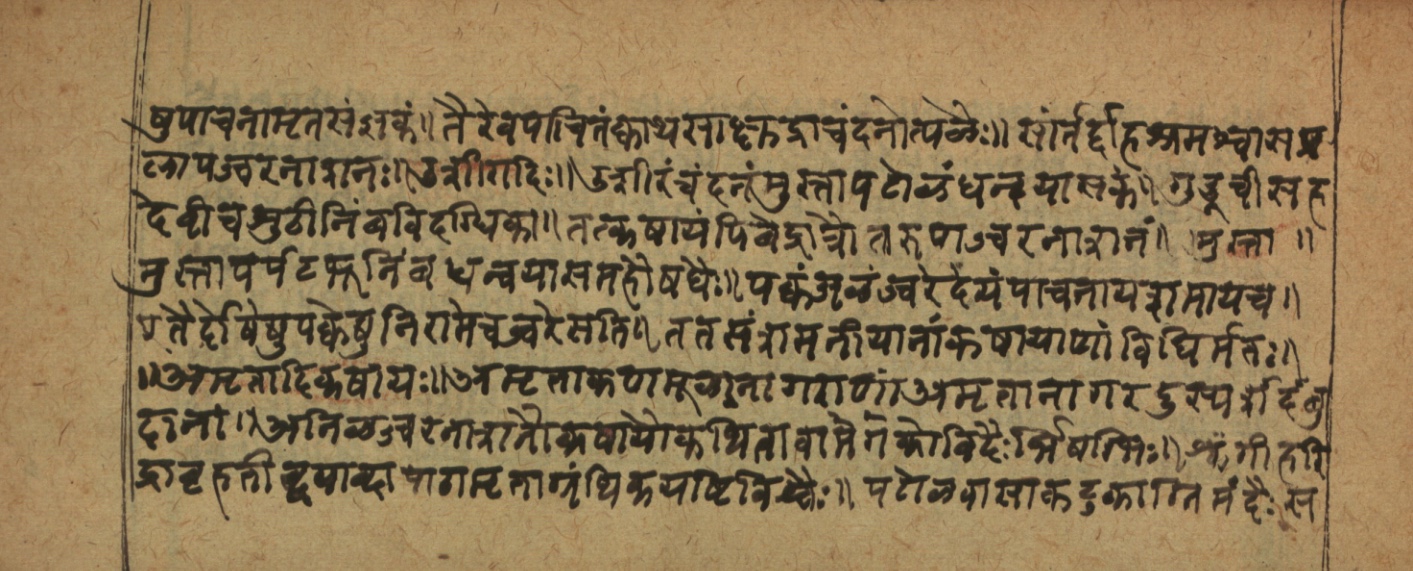 षुपाचनामृतसंज्ञकं॥ तैरेवपाचितंक्काथसाहृद्राचंदनोत्पळैः॥ सांर्तर्द्दाहभ्रमश्वासप्र
ळापज्वरनाशनः॥ उशीरादिः॥ उशीरंचंदनंमुस्तापटोळंधन्वयासकं॥ गुडूचीसह
देवीचसुठीनिंबविदग्धिका॥ ततकषायंपिवेद्रात्रौ तारुपाज्वरनाशनं॥ मुस्ता॥
मुस्तापर्पटकनिंबधन्वयासमहौषधैः॥ पक्कंजळंज्वरेदेयंपाचनायशमायच॥
एतैर्द्दोषेषुपक्केषुनिरामेचज्वरेसति॥ ततसंशमनीयानांकषायाणांविधिर्मतः॥
॥अमृतादिकषायः॥ अमृताकणामूळनागराणां अमृतानागरदुस्पर्शार्दबु
दानां॥ अनिळज्वरनाशनौकषायौकथितावामैगमकोविदैःर्भिषग्भिः॥ शृंगीहरि
द्राबृहतीद्वयाब्दापाठामृताग्रंथिकयष्टिविश्वैः॥ पटोळवासाकटुकाग्निमंदैः स